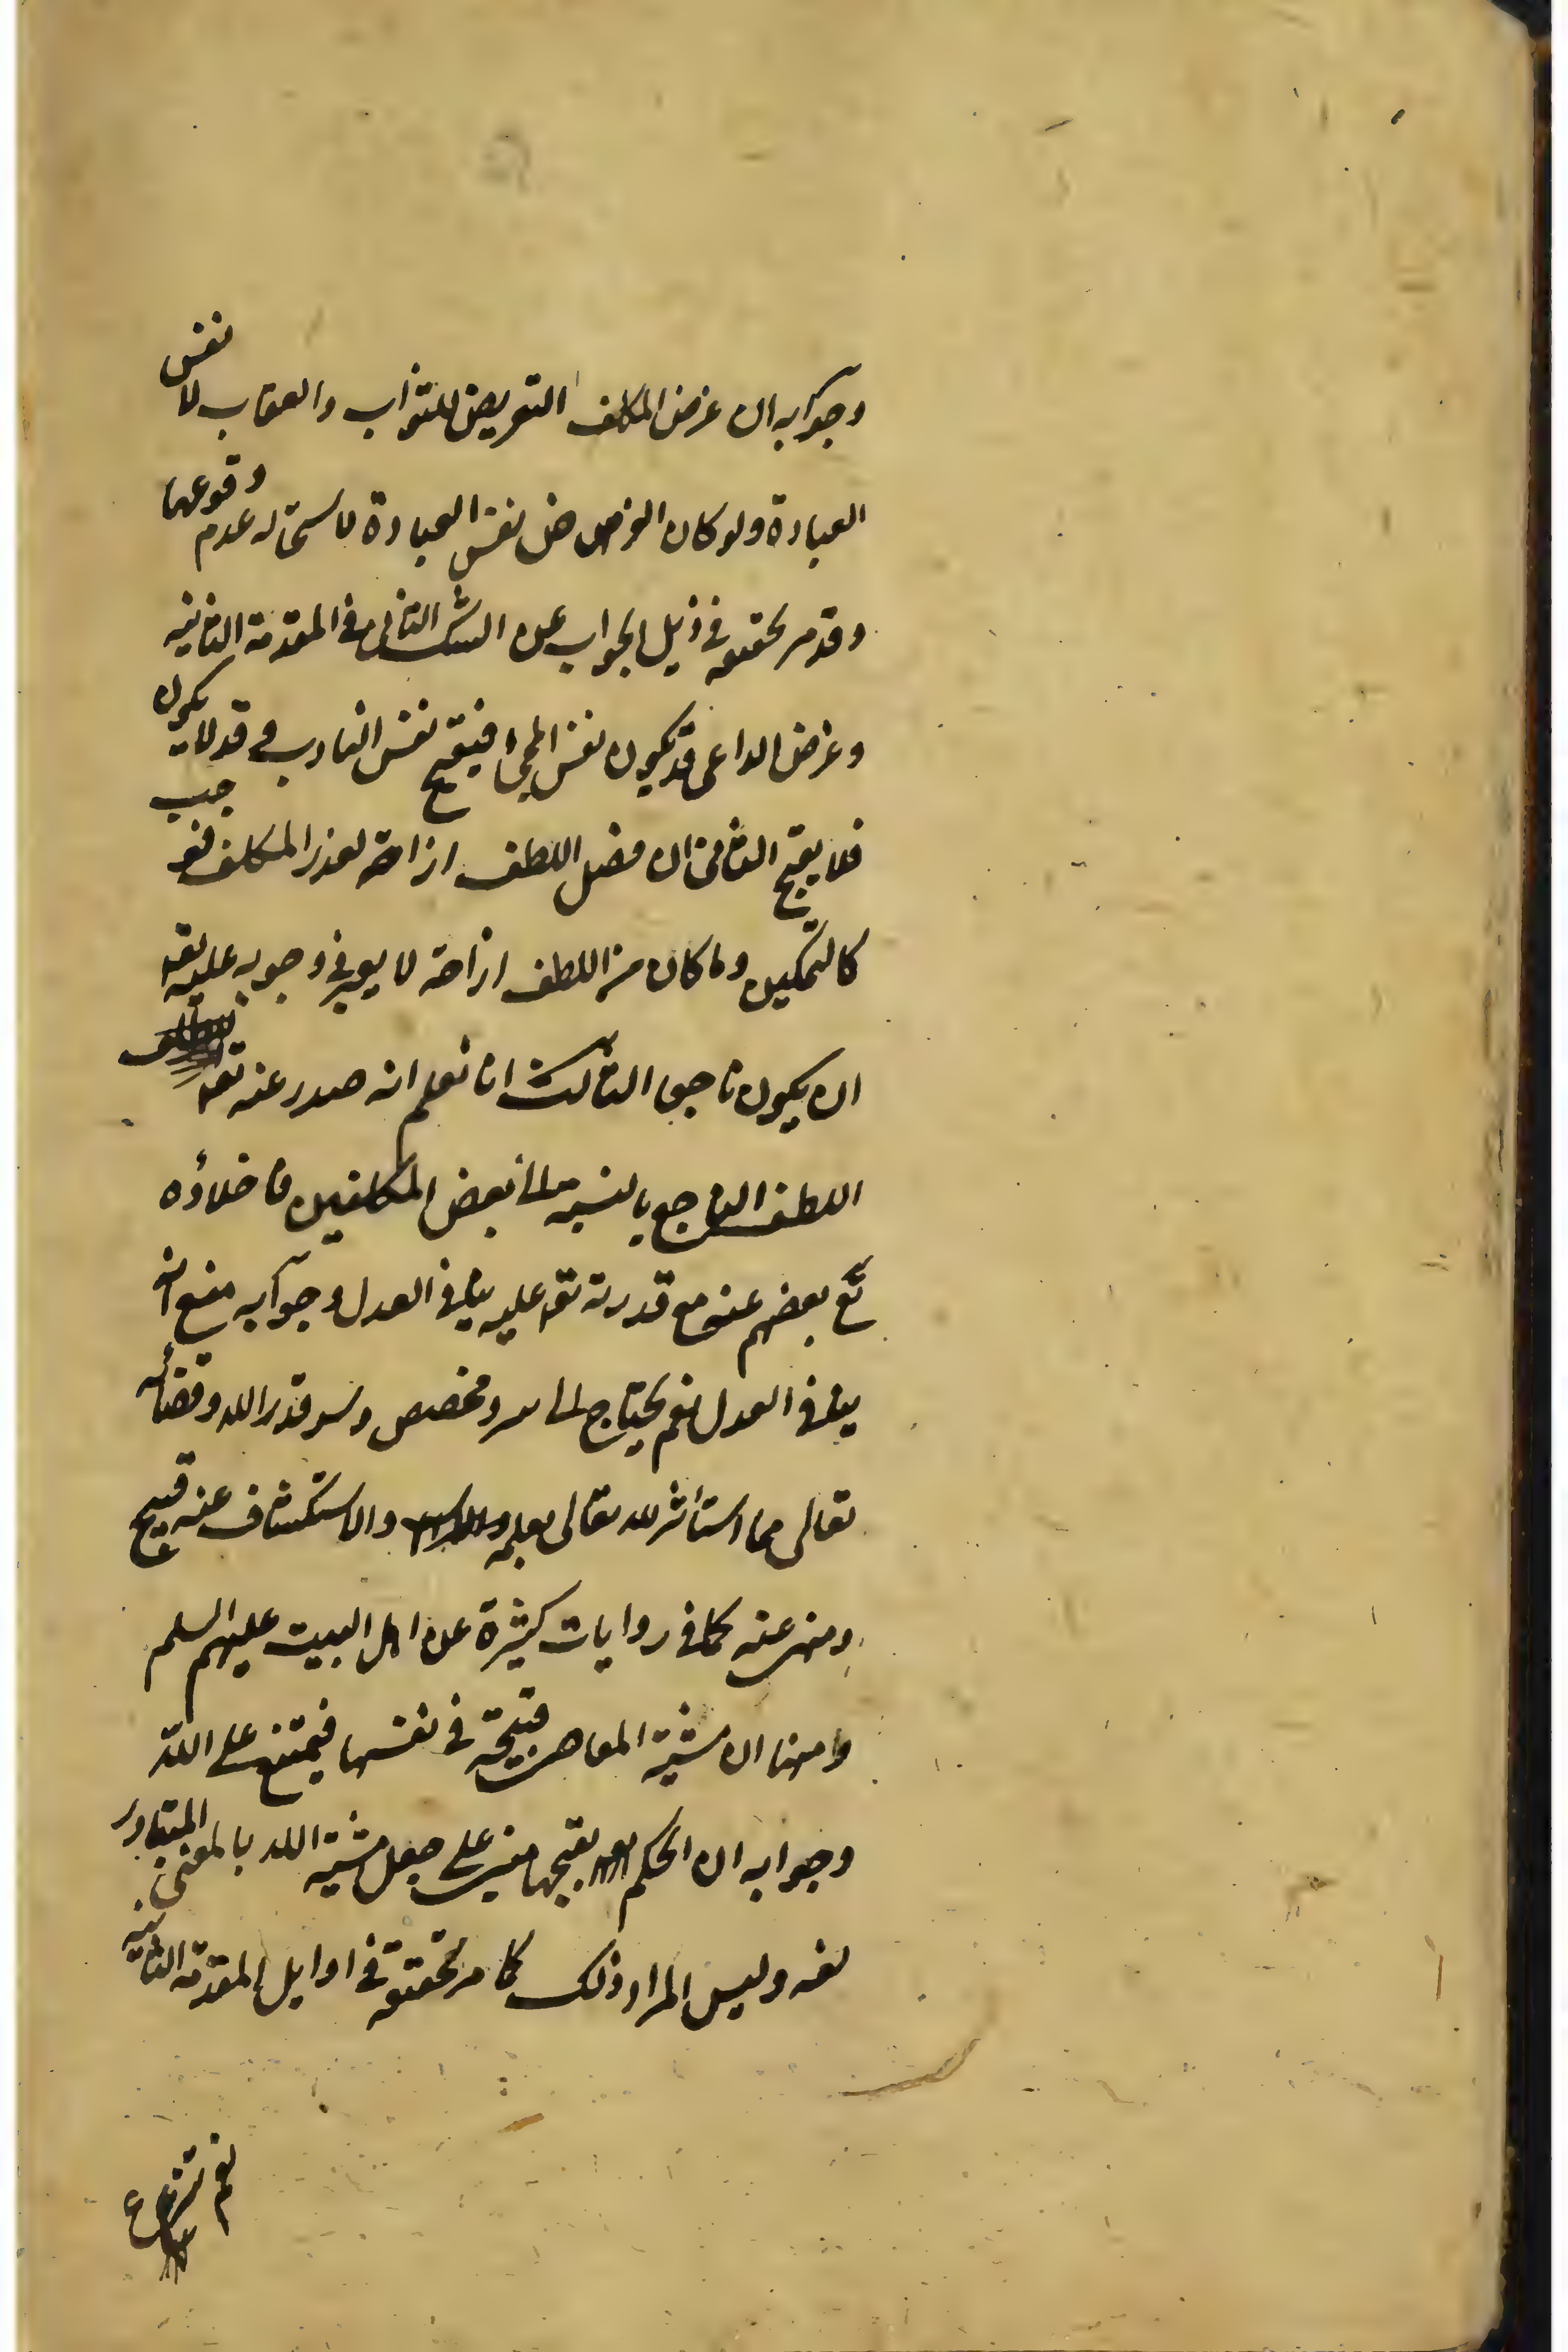 وجوابه ان غرض المكلف التعريض للثواب والعقاب لا نفس
العبادة ولو كان الغرض نفس العبادة لاستحاله عدم وقوعها
وقد مر تحقيقه في ذيل الجواب عن الشك الثاني في المقدمة الثانيه
وغرض الداعي قد يكون نفس المجئ فيقبح نفس التادب وقد لا يكون
فلا يقبح الثامن ان فضل اللطف ازاحة لعذر المكلف فيجب
كالتمكين وما كان من اللطف ازاحة لا يعتبر في وجوبه عليه تعه
ان يكون ناجعا الثالث انا نعلم انه صدر عنه تعه
اللطف الناجع بالنسبة الى بعض المكلفين فاخلاؤه
تع بعضهم عنه مع قدرته تعه عليه ينافي العدل وجوابه منع انه
ينافي العدل نعم يحتاج الى سر ومخصص وسر قدر الله وقضائه
تعالى مما استأثر الله تعالى بعلمه والاستكشاف عنه قبيح
ومنهى عنه كما في روايات كثيرة عن اهل البيت عليهم السلم
وامنها ان مشية المعاصى قبيحة في نفسها فيمتنع على الله
وجوابه ان الحكم بقبحها مبنى على جعل مشية الله بالمعنى المتبادر
لغه وليس المراد ذلك كما مر تحقيقه في اوايل المقدمة الثانيه
نعم